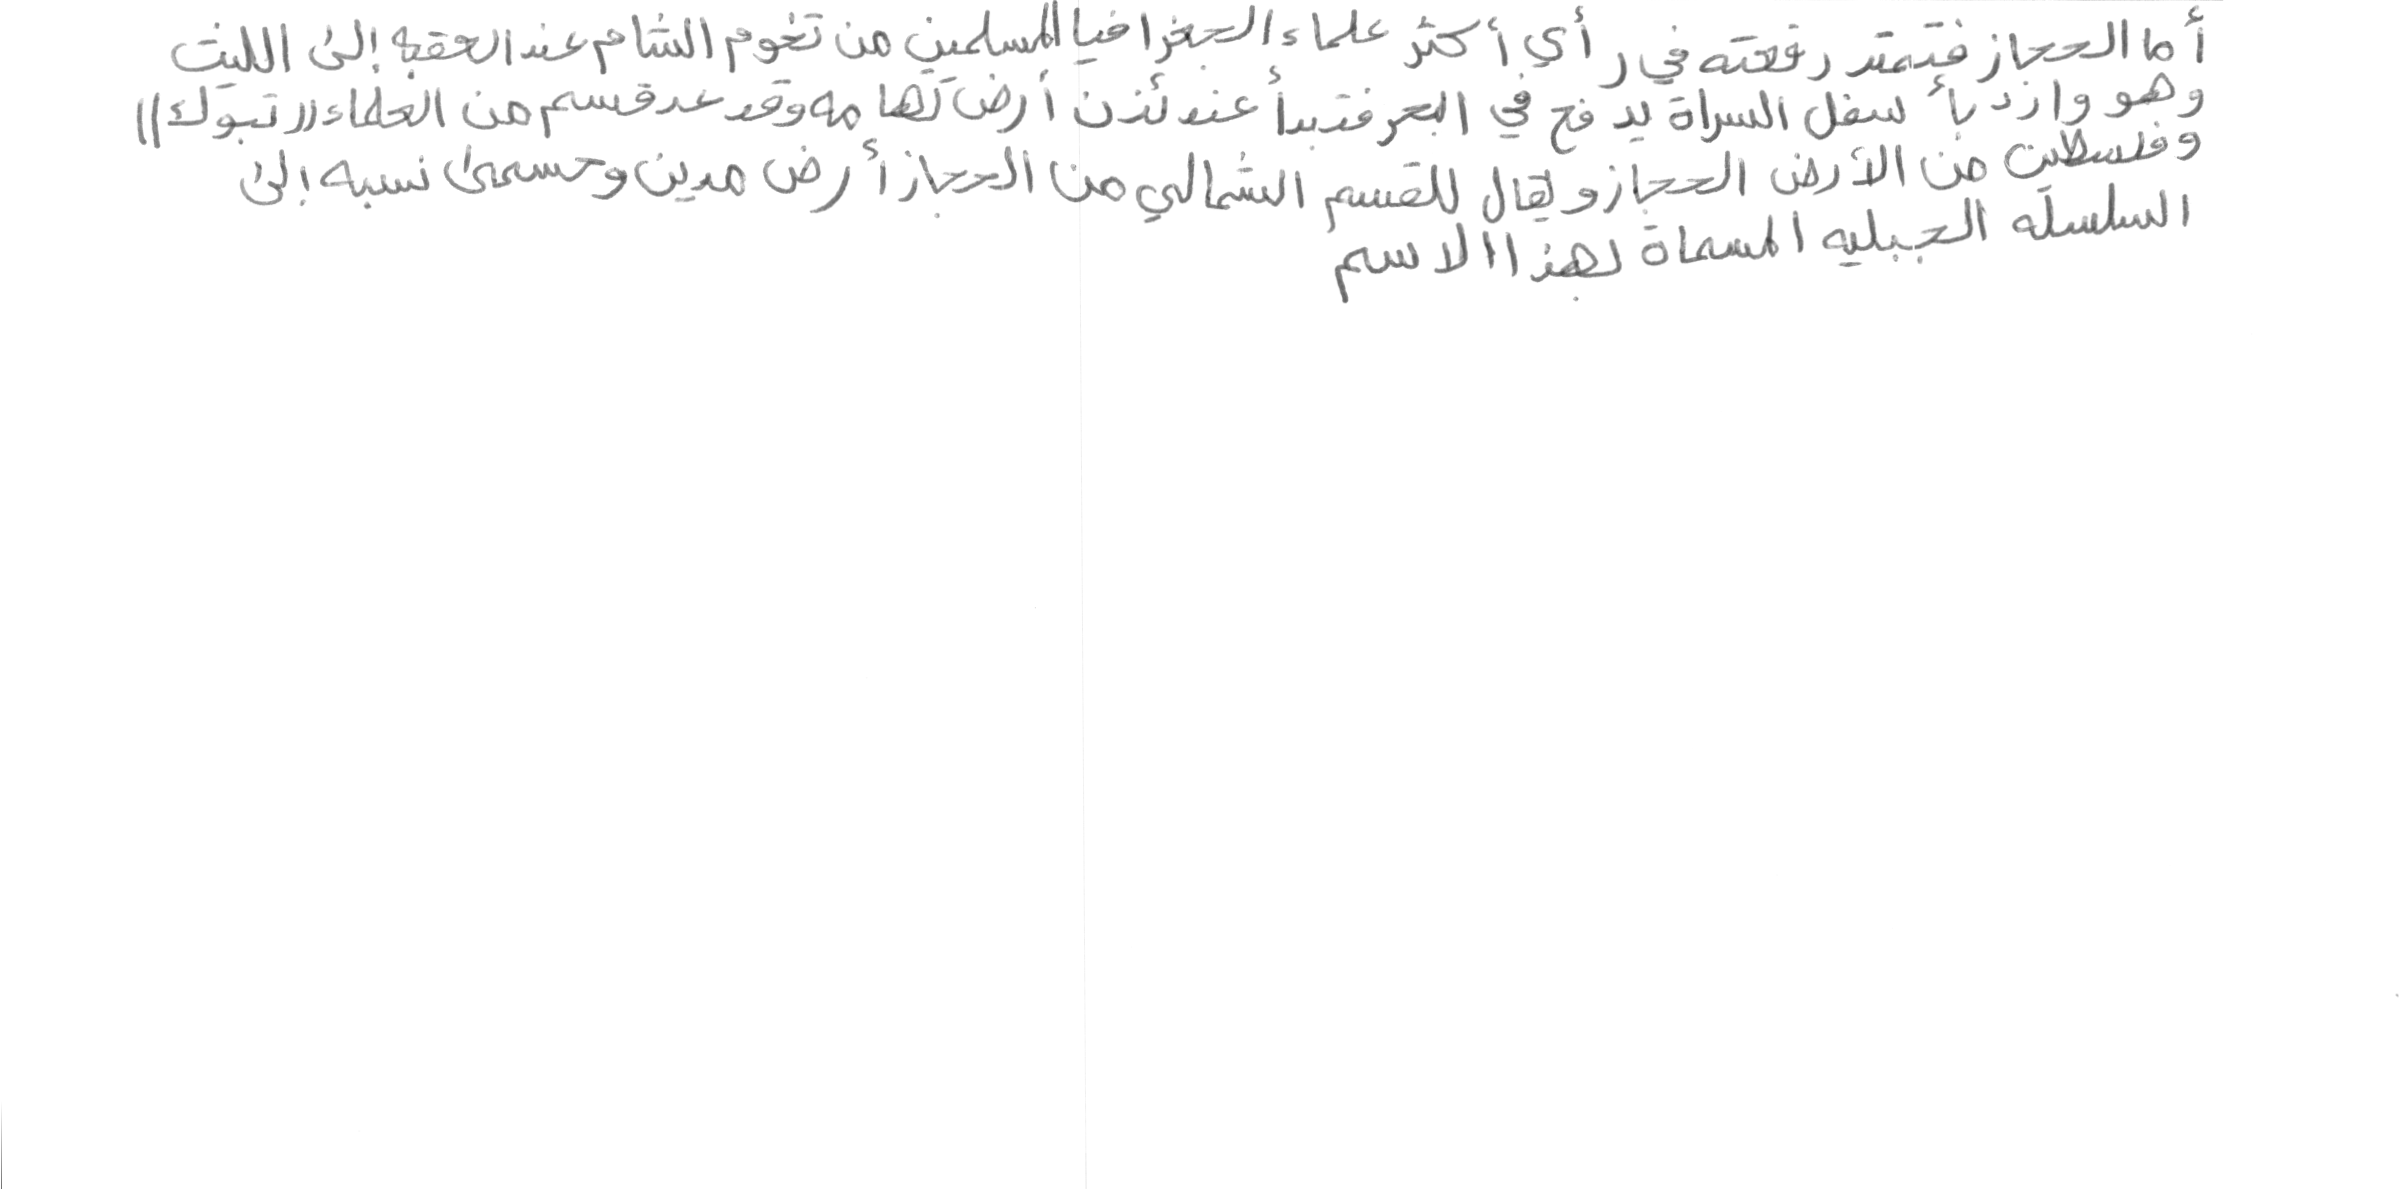 أما الحجاز فتمتد رقعته في رأي أكثر علماء الجغرافيا المسلمين من تخوم الشام عند العقبه إلى الليث
وهو وازد بأسفل السراة يدفع في البحر فتبدأ عندئذن أرض تهامه وقد عد قسم من العلماء ((تبوك))
وفلسطين من الأرض الحجاز ويقال للقسم الشمالي من الحجاز أرض مدين وحسمى نسبه إلى
السلسله الجبليه المسماة بهذا الاسم